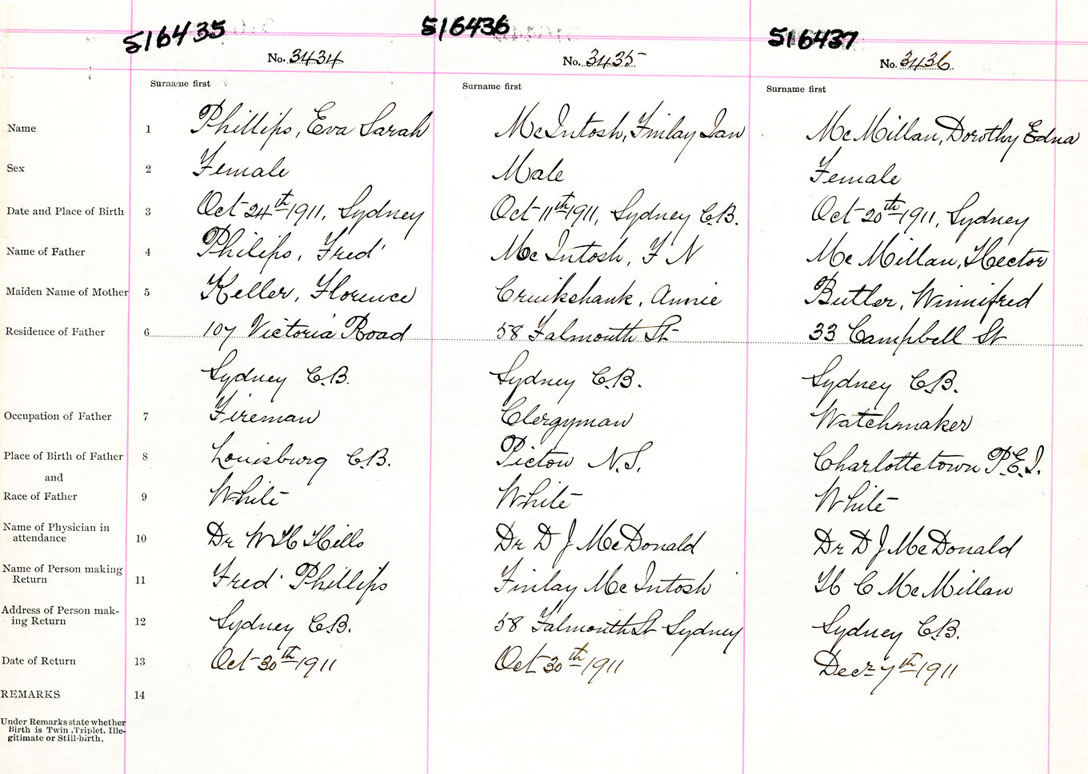 516435 516436 516437
No. 3434 No. 3435 No. 3436
Surname first Surname first Surname first
Name 1 Phillips, Eva Sarah McIntosh, Finlay Ian McMillan, Dorothy Edna
Sex 2 Female Male Female
Date and Place of Birth 3 Oct 24th 1911, Sydney Oct 11th 1911, Sydney C.B. Oct 20th 1911, Sydney
Name of Father 4 Philips, Fred McIntosh, F N McMillan, Hector
Maiden Name of Mother 5 Keller, Florence Cruikshank, Annie Butler, Winnifred
Residence of Father 6 107 Victoria Road 58 Falmouth St 33 Campbell St
Sydney C.B. Sydney C.B. Sydney C.B.
Occupation of Father 7 Fireman Clergyman Watchmaker
Place of Birth of Father 8 Louisburg C.B. Pictou N.S. Charlottetown P.E.I.
and
Race of Father 9 White White White
Name of Physician in
attendance 10 Dr W H Hills Dr D J McDonald Dr D J McDonald
Name of Person making
Return 11 Fred Phillips Finlay McIntosh H C McMillan
Address of Person mak-
ing Return 12 Sydney C.B. 58 Falmouth St Sydney Sydney C.B.
Date of Return 13 Oct 30th 1911 Oct 30th 1911 Decr 7th 1911
REMARKS 14
Under Remarks state whether
Birth is Twin, Triplet, Ille-
gitimate or Still-birth.